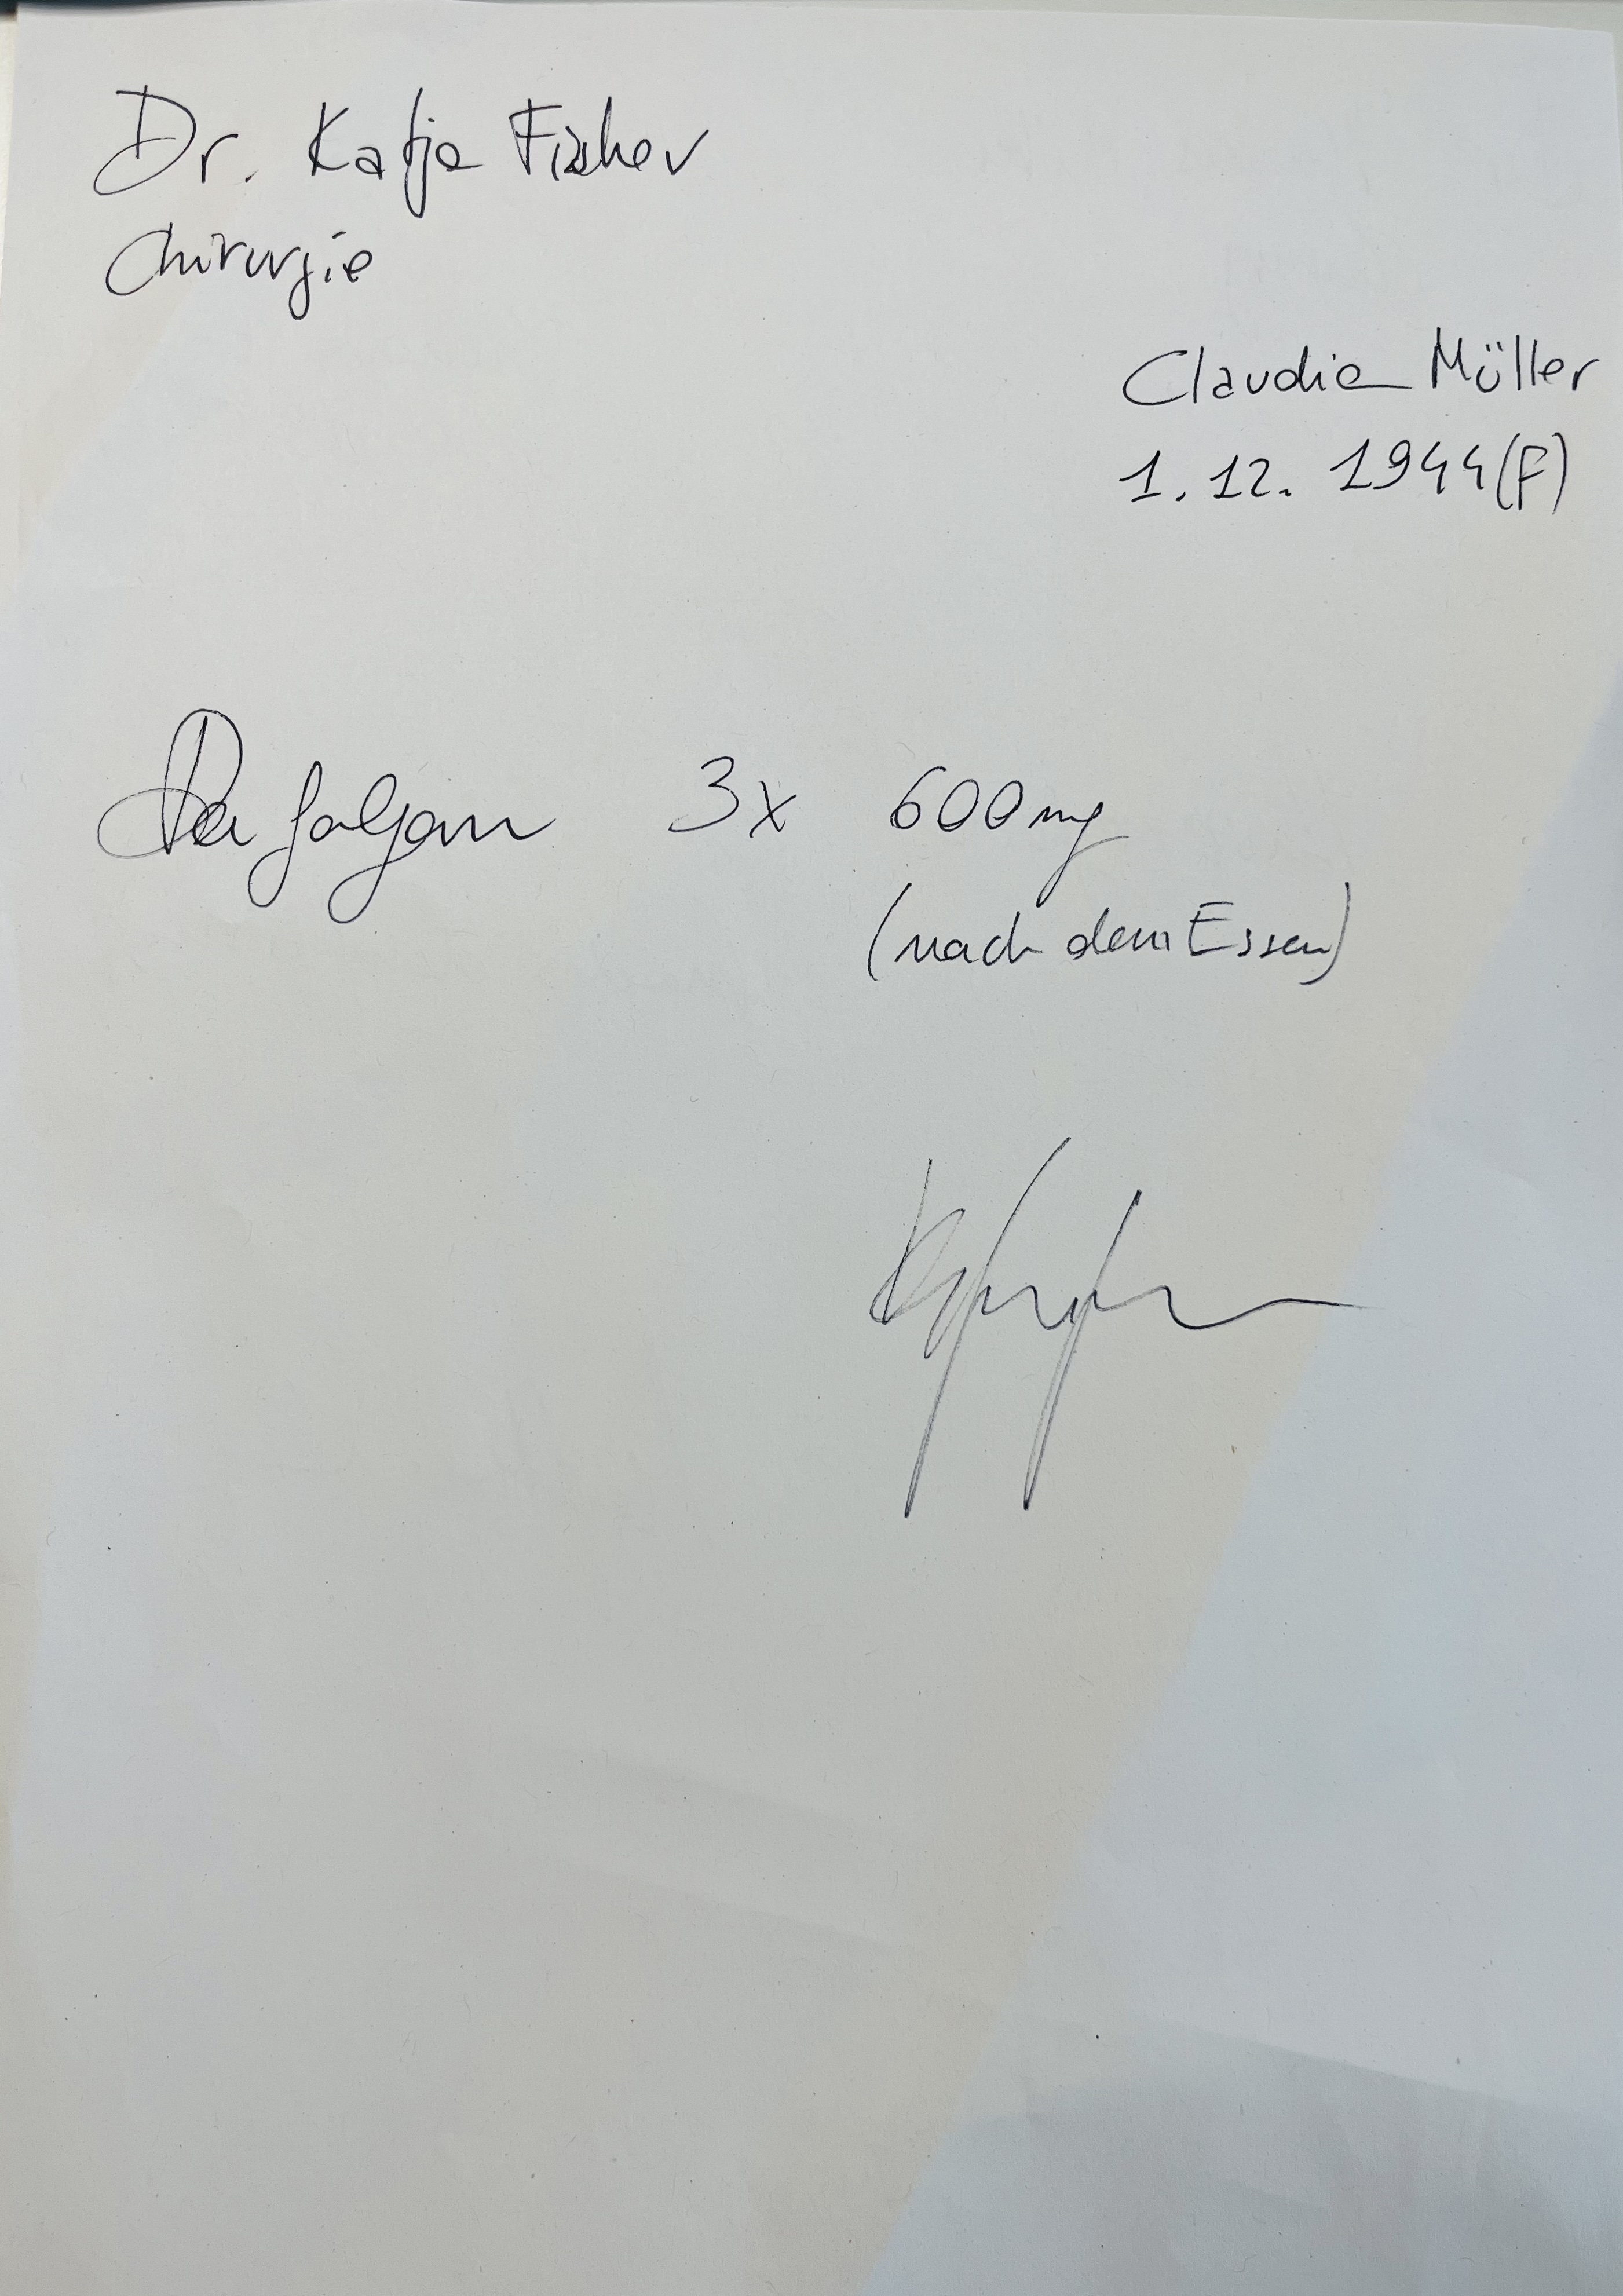 Dr. Katja Fisher
Chirurgie
Claudia Müller
1.12.1944(F)
Dafalgan 3x 600mg
(nach dem Essen)